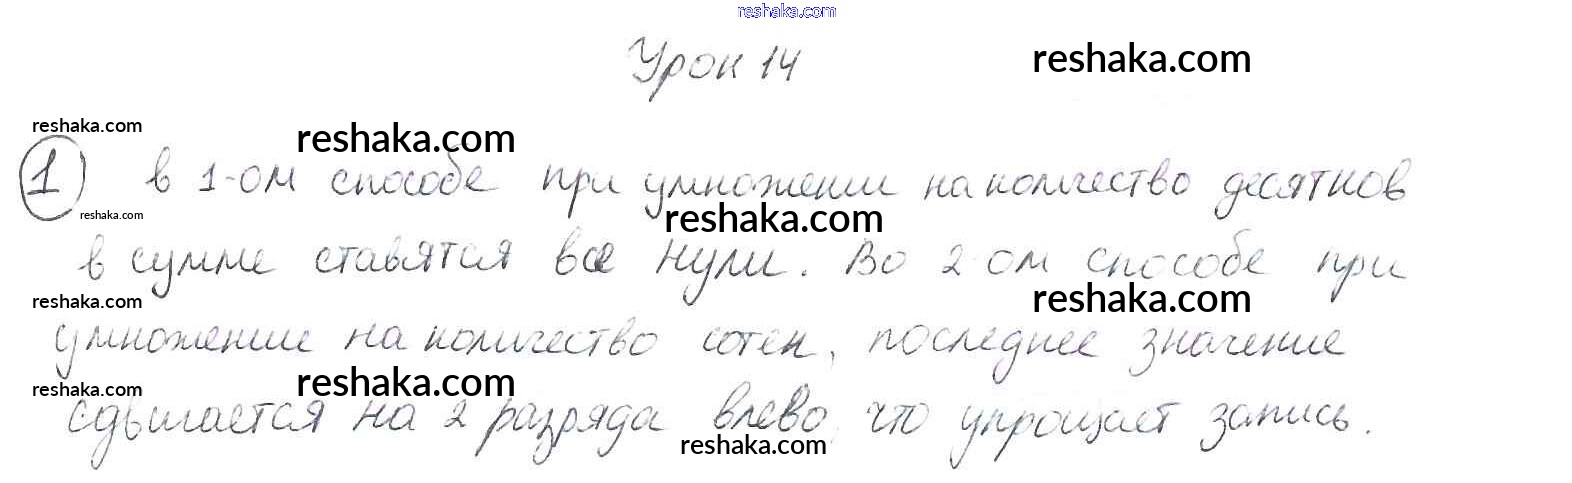 reshaka.com
Урок 14
reshaka.com
reshaka.com
reshaka.com
1) в 1-ом способе при умножении на количество десятков
reshaka.com
reshaka.com
в сумме ставятся все нули. Во 2-ом способе при
reshaka.com
reshaka.com
умножение на количество сотен, последнее значение
reshaka.com
reshaka.com
сдвигается на 2 разряда влево, что упрощает запись.
reshaka.com